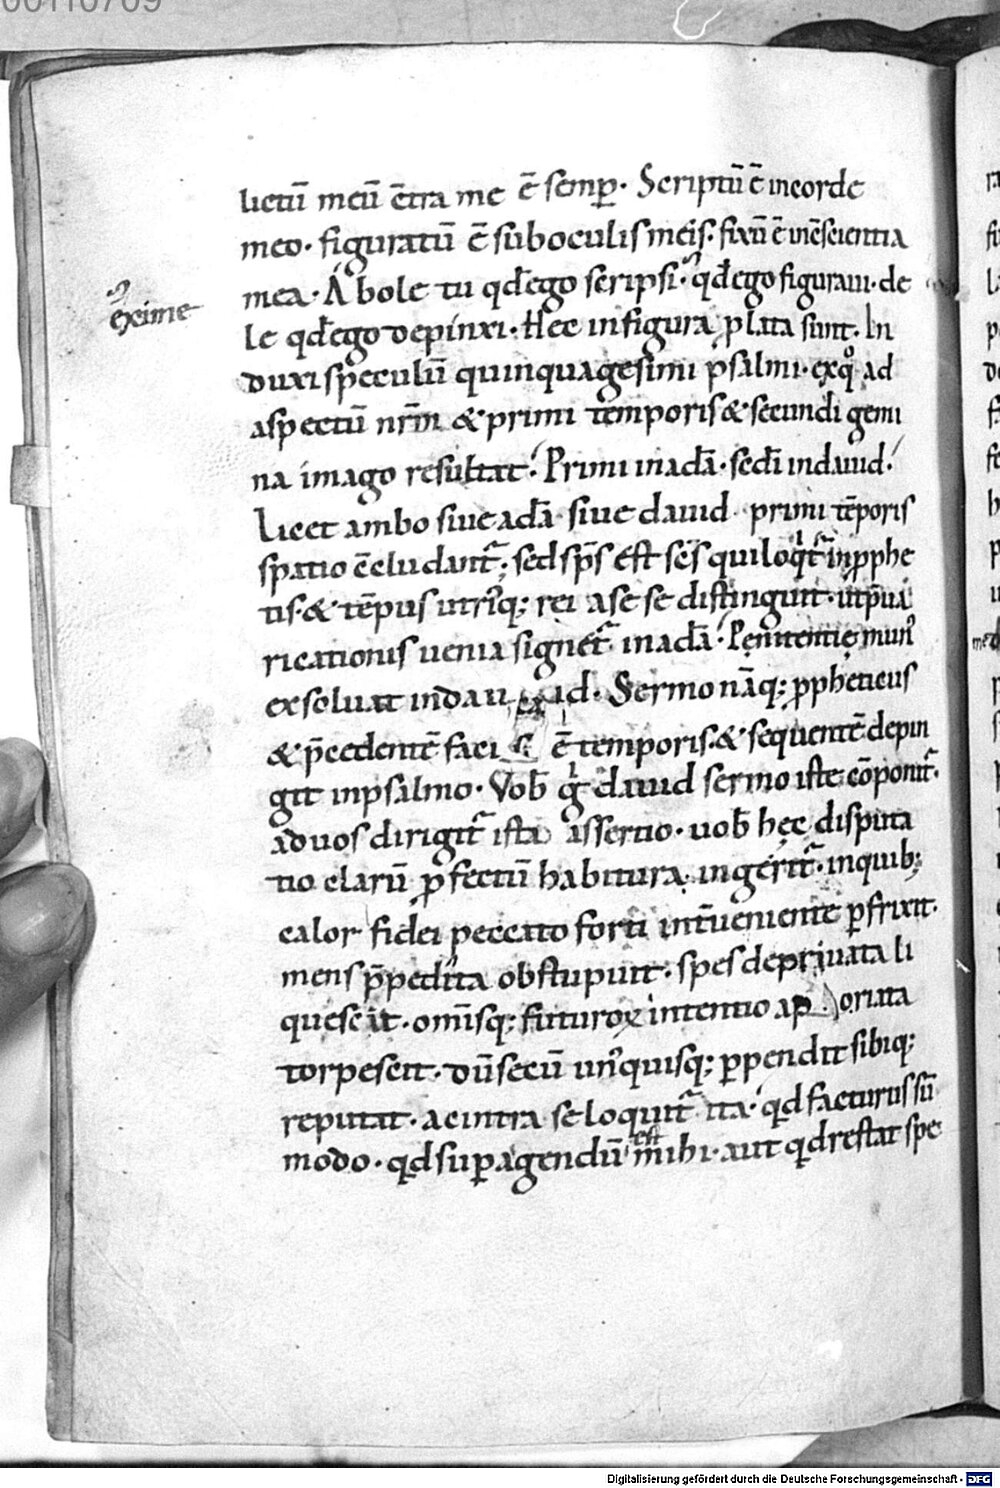 00110709
lictū meū c̄tra me ē semꝑ. Scriptū ē incorde
meo. figuratū ē suboculis meis. fixū ē incōscientia
mea. Abole tu qđego scripsi. qđego figuraui. de
exime
le qđego depinxi. Hec infigura plata sunt. In
duxi speculū quinquagesimi psalmi. exqͦ ad
aspectū nr̄m & primi temporis & secundi gemi
na imago resultat. Primi inadā. sedi indauid.
Licet ambo siue adā siue dauid primi tēporis
spatio c̄cludant᷑; sed sp̄s est sc̄s qui loqͥt᷑ inꝓphe
tis. & tēpus utriꝰq; rei a se se distinguit. ut p̄ua
ricationis uenia signet᷑ inadā. Penitentie munꝰ
exsoluat indauid. Sermo nāq; ꝓpheticus
& p̄cedentē faci ē temporis. & sequentē depin
git inpsalmo. Vob̄ gͥ dauid sermo iste cōponit᷑.
aduos dirigit᷑ ista assertio. uob̄ hęc disputa
tio clarū ꝓfectū habitura ingerit᷑. inquib;
calor fidei peccato forti int̄ueniente ꝑfrixit.
mens p̄pedita obstupuit. spes depriuata li
quescit. om̄isq; futuroꝝ intentio ap oriata
torpescit. dū secū unꝰquisq; ꝑpendit sibiq;
reputat. ac intra se loquit᷑ ita. qđ facturus sū
modo. qđ suꝑ agendū est mihi. aut qđ restat spe
Digitalisierung gefördert durch die Deutsche Forschungsgemeinschaft - DFG